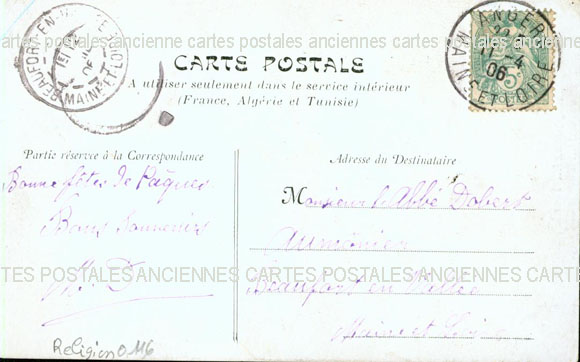 CARTE POSTALE
A utiliser seulement dans le service intérieur
(France, Algérie et Tunisie)
BEAUFORT-EN-
MAINE-ET-LOIRE
ANGERS
4
06
MAINE-ET-LOIRE
5c
Partie réservée à la Correspondance
Bonne fêtes de Pâques
Bons Souvenirs
Adresse du Destinataire
Monsieur l'Abbé
aumônier
Beaufort en Vallée
Maine et Loire
Religion 0,116
cartes postales anciennes cartes postales anciennes cartes postales
CARTES POSTALES ANCIENNES CARTES POSTALES ANCIENNES CARTES